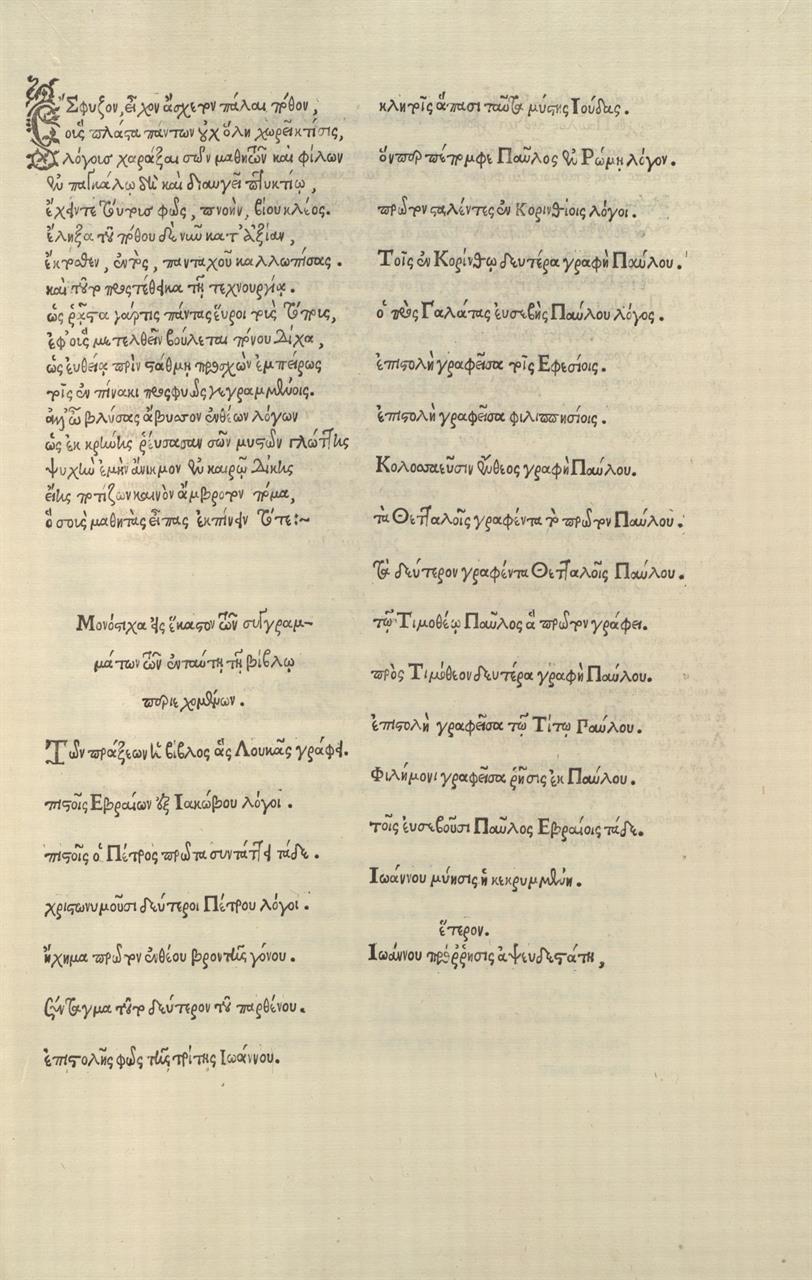 ἜΣφυξον, εἶχον ἄσχετον πάλαι πόθον,
οἷς πλάστα πάντων οὐχ ὅλη χωρεῖ κτίσις,
λόγοις χαράξαι σῶν μαθητῶν καὶ φίλων
ἐν παγκάλῳ δὴ καὶ διαυγεῖ πτυκτίῳ,
ἔχειν τε τούτοις φῶς, πνοὴν, βίου κλέος.
ἔληξα τοῦ πόθου δὲ νῦν κατ' ἀξίαν,
ἔκτοθεν, ἐντὸς, πανταχοῦ καλλωπίσας.
καὶ τοῦτο προστέθεικα τῇ τεχνουργίᾳ.
ὡς ῥᾷστα γάρ τις πάντας εὕροι τοῖς τούτοις,
ἐφ' οἷς μετελθεῖν βούλεται πόνου δίχα,
ὡς εὐθείᾳ πρὶν στάθμῃ προσχὼν ἐμπείρως
τοῖς ἐν πίνακι προσφυῶς γεγραμμένοις.
ἀνθ' ὧν βλύσας ἄβυσσον ἐνθέων λόγων
ὡς ἐκ κρήνης ῥεύσασαν σῶν μυστῶν γλώττης
ψυχὴν ἐμὴν ἄνικμον ἐν καιρῷ δίκης
εἴης ποτίζων καινὸν ἄμβροτον πόμα,
ὅ στοὺς μαθητὰς εἶπας ἐκπίνειν τότε:~
Μονόστιχα εἰς ἕκαστον τῶν συγγραμ-
μάτων τῶν ἐν ταύτῃ τῇ βίβλῳ
περιεχομένων.
Τῶν πράξεων ἡ βίβλος ἃς Λουκᾶς γράφει.
πιστοῖς Εβραίων ἐξ Ιακώβου λόγοι.
πιστοῖς ὁ Πέτρος πρῶτα συντάττει τάδε.
χριστωνυμοῦσι δεύτεροι Πέτρου λόγοι.
ἤχημα πρῶτον ἐνθέου βροντῆς γόνου.
Σύνταγμα τοῦτο δεύτερον τοῦ παρθένου.
ἐπιστολῆς φῶς τῆς τρίτης Ιωάννου.
κλητοῖς ἅπασι ταῦτα μύστης Ιούδας.
ὅνπερ πέπομφε Παῦλος ἐν Ρώμῃ λόγον.
πρῶτον σαλέντες ἐν Κορινθίοις λόγοι.
Τοῖς ἐν Κορίνθῳ δευτέρα γραφὴ Παύλου.
ὁ πρὸς Γαλάτας εὐσεβὴς Παύλου λόγος.
ἐπιστολὴ γραφεῖσα τοῖς Εφεσίοις.
ἐπιστολὴ γραφεῖσα φιλιππησίοις.
Κολοσσαεῦσιν ἔνθεος γραφὴ Παύλου.
τὰ Θετταλοῖς γραφέντα τὸ πρῶτον Παύλου.
τὰ δεύτερον γραφέντα Θετταλοῖς Παύλου.
τῷ Τιμοθέῳ Παῦλος ἃ πρῶτον γράφει.
πρὸς Τιμόθεον δευτέρα γραφὴ Παύλου.
ἐπιστολὴ γραφεῖσα τῷ Τίτῳ Παύλου.
Φιλήμονι γραφεῖσα ῥῆσις ἐκ Παύλου.
τοῖς εὐσεβοῦσι Παῦλος Εβραίοις τάδε.
Ιωάννου μύησις ἡ κεκρυμμένη.
ἕτερον.
Ιωάννου πρόῤῥησις ἀψευδεστάτη,